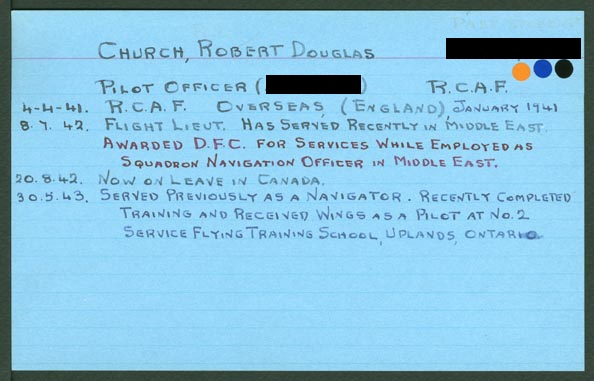 CHURCH, ROBERT DOUGLAS
PILOT OFFICER ( ) R.C.A.F.
4-4-41. R.C.A.F. OVERSEAS, (ENGLAND), JANUARY 1941
8.7.42. FLIGHT LIEUT. HAS SERVED RECENTLY IN MIDDLE EAST.
AWARDED D.F.C. FOR SERVICES WHILE EMPLOYED AS
SQUADRON NAVIGATION OFFICER IN MIDDLE EAST.
20.8.42. NOW ON LEAVE IN CANADA.
30.5.43. SERVED PREVIOUSLY AS A NAVIGATOR. RECENTLY COMPLETED
TRAINING AND RECEIVED WINGS AS A PILOT AT NO.2
SERVICE FLYING TRAINING SCHOOL, UPLANDS, ONTARIO